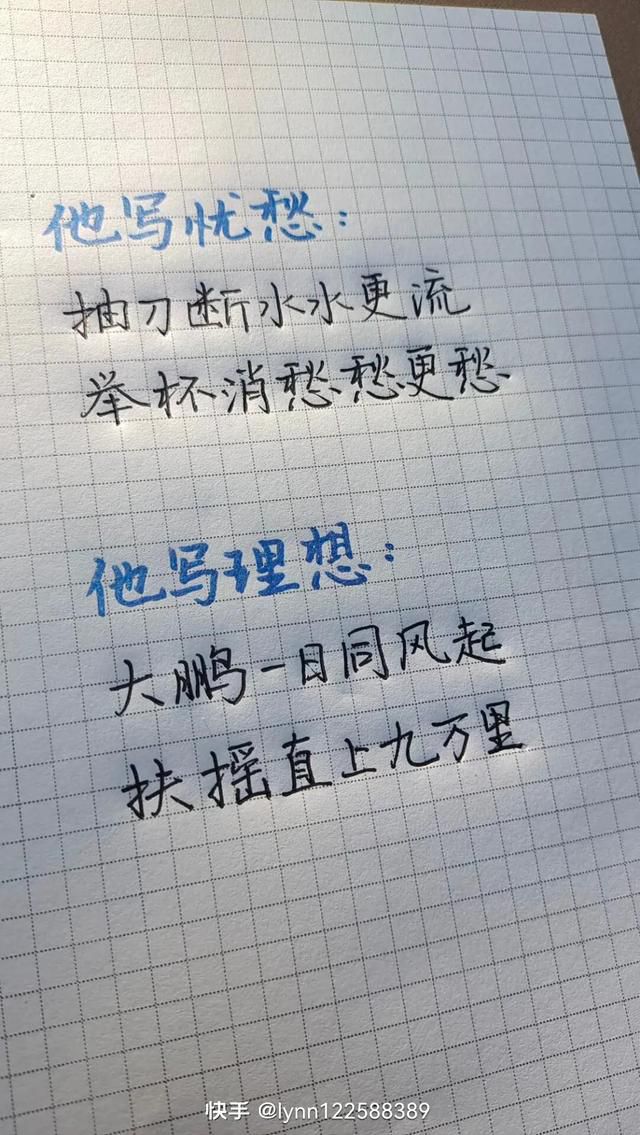 他写忧愁：
抽刀断水水更流
举杯消愁愁更愁
他写理想：
大鹏一日同风起
扶摇直上九万里
快手 @lynn122588389